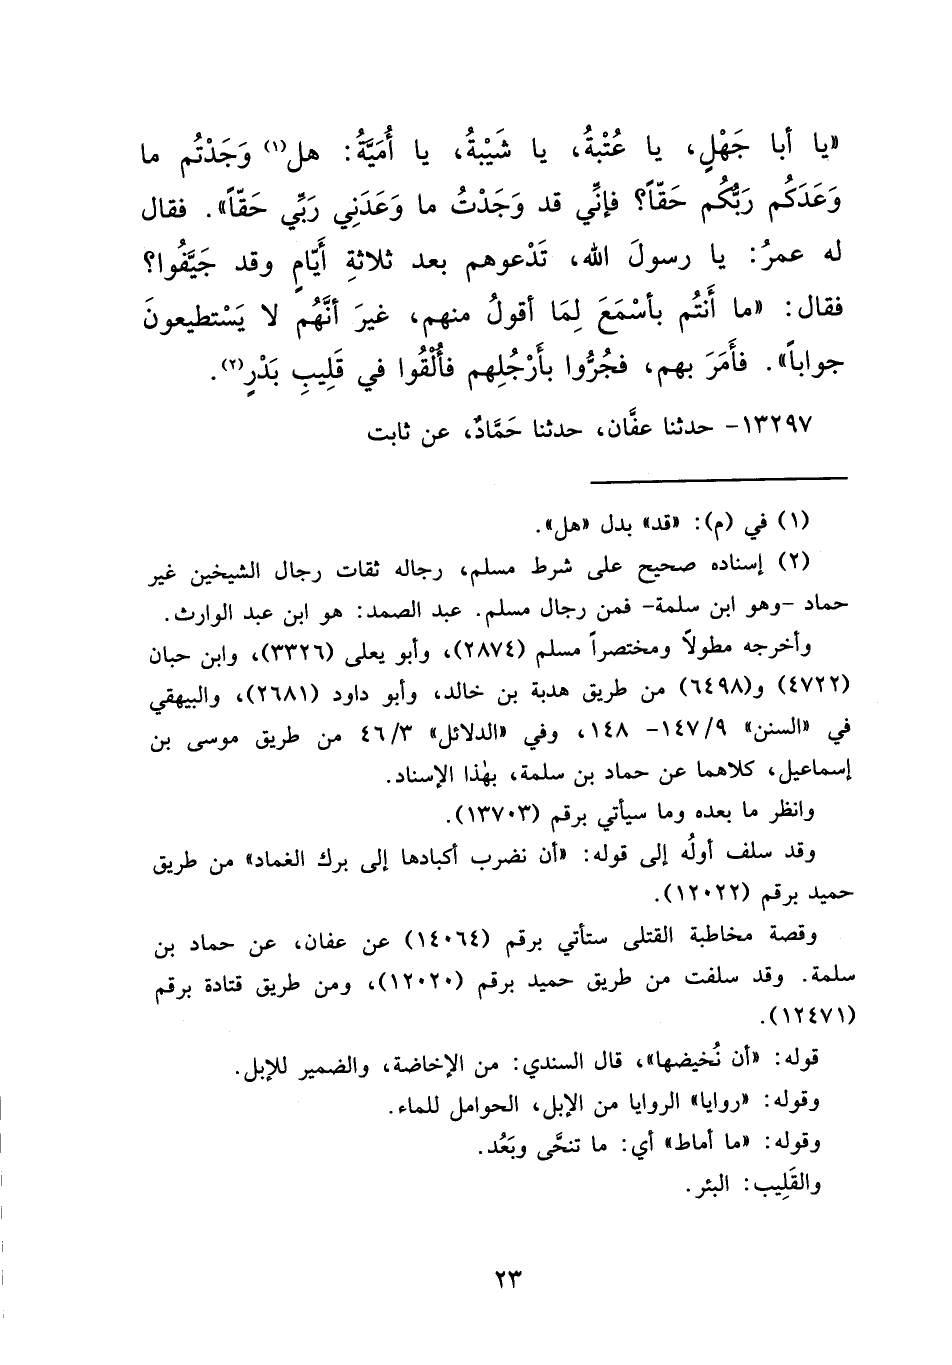 «يا أبا جَهْلٍ، يا عُتْبةُ، يا شَيْبةُ، يا أُمَيَّةُ: هل(١) وَجَدْتُم ما
وَعَدَكُم رَبُّكُم حَقّاً؟ فإنِّي قد وَجَدْتُ ما وَعَدَنِي رَبِّي حَقّاً». فقال
له عمرُ: يا رسولَ الله، تَدْعوهم بعد ثلاثةِ أَيَّامٍ وقد جَيَّفُوا؟
فقال: «ما أَنتُم بأسْمَعَ لِمَا أقولُ منهم، غيرَ أنَّهُم لا يَسْتطيعونَ
جواباً». فأَمَرَ بهم، فجُرُّوا بأَرْجُلِهم فأُلْقُوا في قَلِيبِ بَدْرٍ(٢).
١٣٢٩٧- حدثنا عفَّان، حدثنا حَمَّادٌ، عن ثابت
(١) في (م): «قد» بدل «هل».
(٢) إسناده صحيح على شرط مسلم، رجاله ثقات رجال الشيخين غير
حماد -وهو ابن سلمة- فمن رجال مسلم. عبد الصمد: هو ابن عبد الوارث.
وأخرجه مطولاً ومختصراً مسلم (٢٨٧٤)، وأبو يعلى (٣٣٢٦)، وابن حبان
(٤٧٢٢) و(٦٤٩٨) من طريق هدبة بن خالد، وأبو داود (٢٦٨١)، والبيهقي
في «السنن» ٩/١٤٧- ١٤٨، وفي «الدلائل» ٣/٤٦ من طريق موسى بن
إسماعيل، كلاهما عن حماد بن سلمة، بهٰذا الإسناد.
وانظر ما بعده وما سيأتي برقم (١٣٧٠٣).
وقد سلف أولُه إلى قوله: «أن نضرب أكبادها إلى برك الغماد» من طريق
حميد برقم (١٢٠٢٢).
وقصة مخاطبة القتلى ستأتي برقم (١٤٠٦٤) عن عفان، عن حماد بن
سلمة. وقد سلفت من طريق حميد برقم (١٢٠٢٠)، ومن طريق قتادة برقم
(١٢٤٧١).
قوله: «أن نُخيضها»، قال السندي: من الإخاضة، والضمير للإبل.
وقوله: «روايا» الروايا من الإبل، الحوامل للماء.
وقوله: «ما أماط» أي: ما تنحَّى وبَعُد.
والقَلِيب: البئر.
٢٣